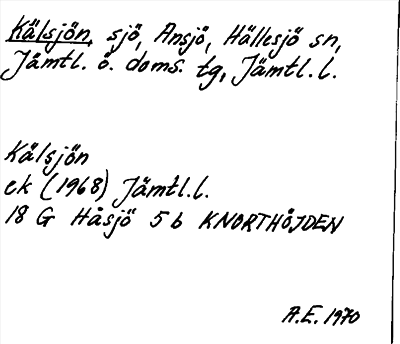 Kälsjön, sjö, Ansjö, Hällesjö sn,
Jämtl. ö. doms. tg, Jämtl. l.
Kälsjön
ek (1968) Jämtl. l.
18 G Håsjö 5 b KNORTHÖJDEN
A.E. 1970